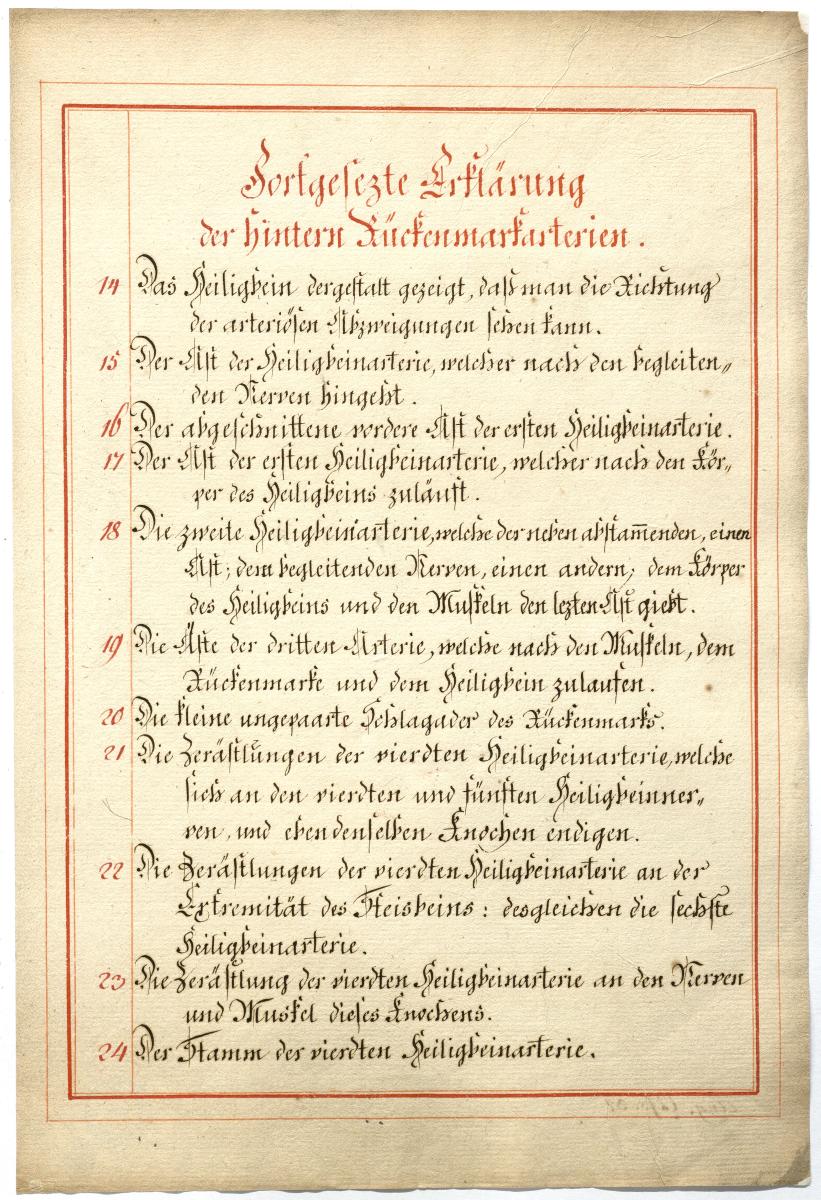 Fortgesezte Erklärung
der hintern Rückenmarkarterien.
14 Das Heiligbein dergestalt gezeigt, daß man die Richtung
der arteriösen Abzweigungen sehen kann.
15 Der Ast der Heiligbeinarterie, welcher nach den begleiten„
den Nerven hingeht.
16 Der abgeschnittene vordere Ast der ersten Heiligbeinarterie.
17 Der Ast der ersten Heiligbeinarterie, welcher nach den Kör„
per des Heiligbeins zuläuft.
18 Die zweite Heiligbeinarterie, welche der neben abstam̅enden, einen
Ast; dem begleitenden Nerven, einen andern; dem Körper
des Heiligbeins und den Muskeln den lezten Ast giebt.
19 Die Äste der dritten Arterie, welche nach den Muskeln, dem
Rückenmarke und dem Heiligbein zulaufen.
20 Die kleine ungepaarte Schlagader des Rückenmarks.
21 Die Zerästlungen der vierdten Heiligbeinarterie, welche
sich an den vierdten und fünften Heiligbeinner„
ven, und eben denselben Knochen endigen.
22 Die Zerästlungen der vierdten Heiligbeinarterie an der
Extremität des Steisbeins: desgleichen die sechste
Heiligbeinarterie.
23 Die Zerästlung der vierdten Heiligbeinarterie an den Nerven
und Muskel dieses Knochens.
24 Der Stamm der vierdten Heiligbeinarterie.